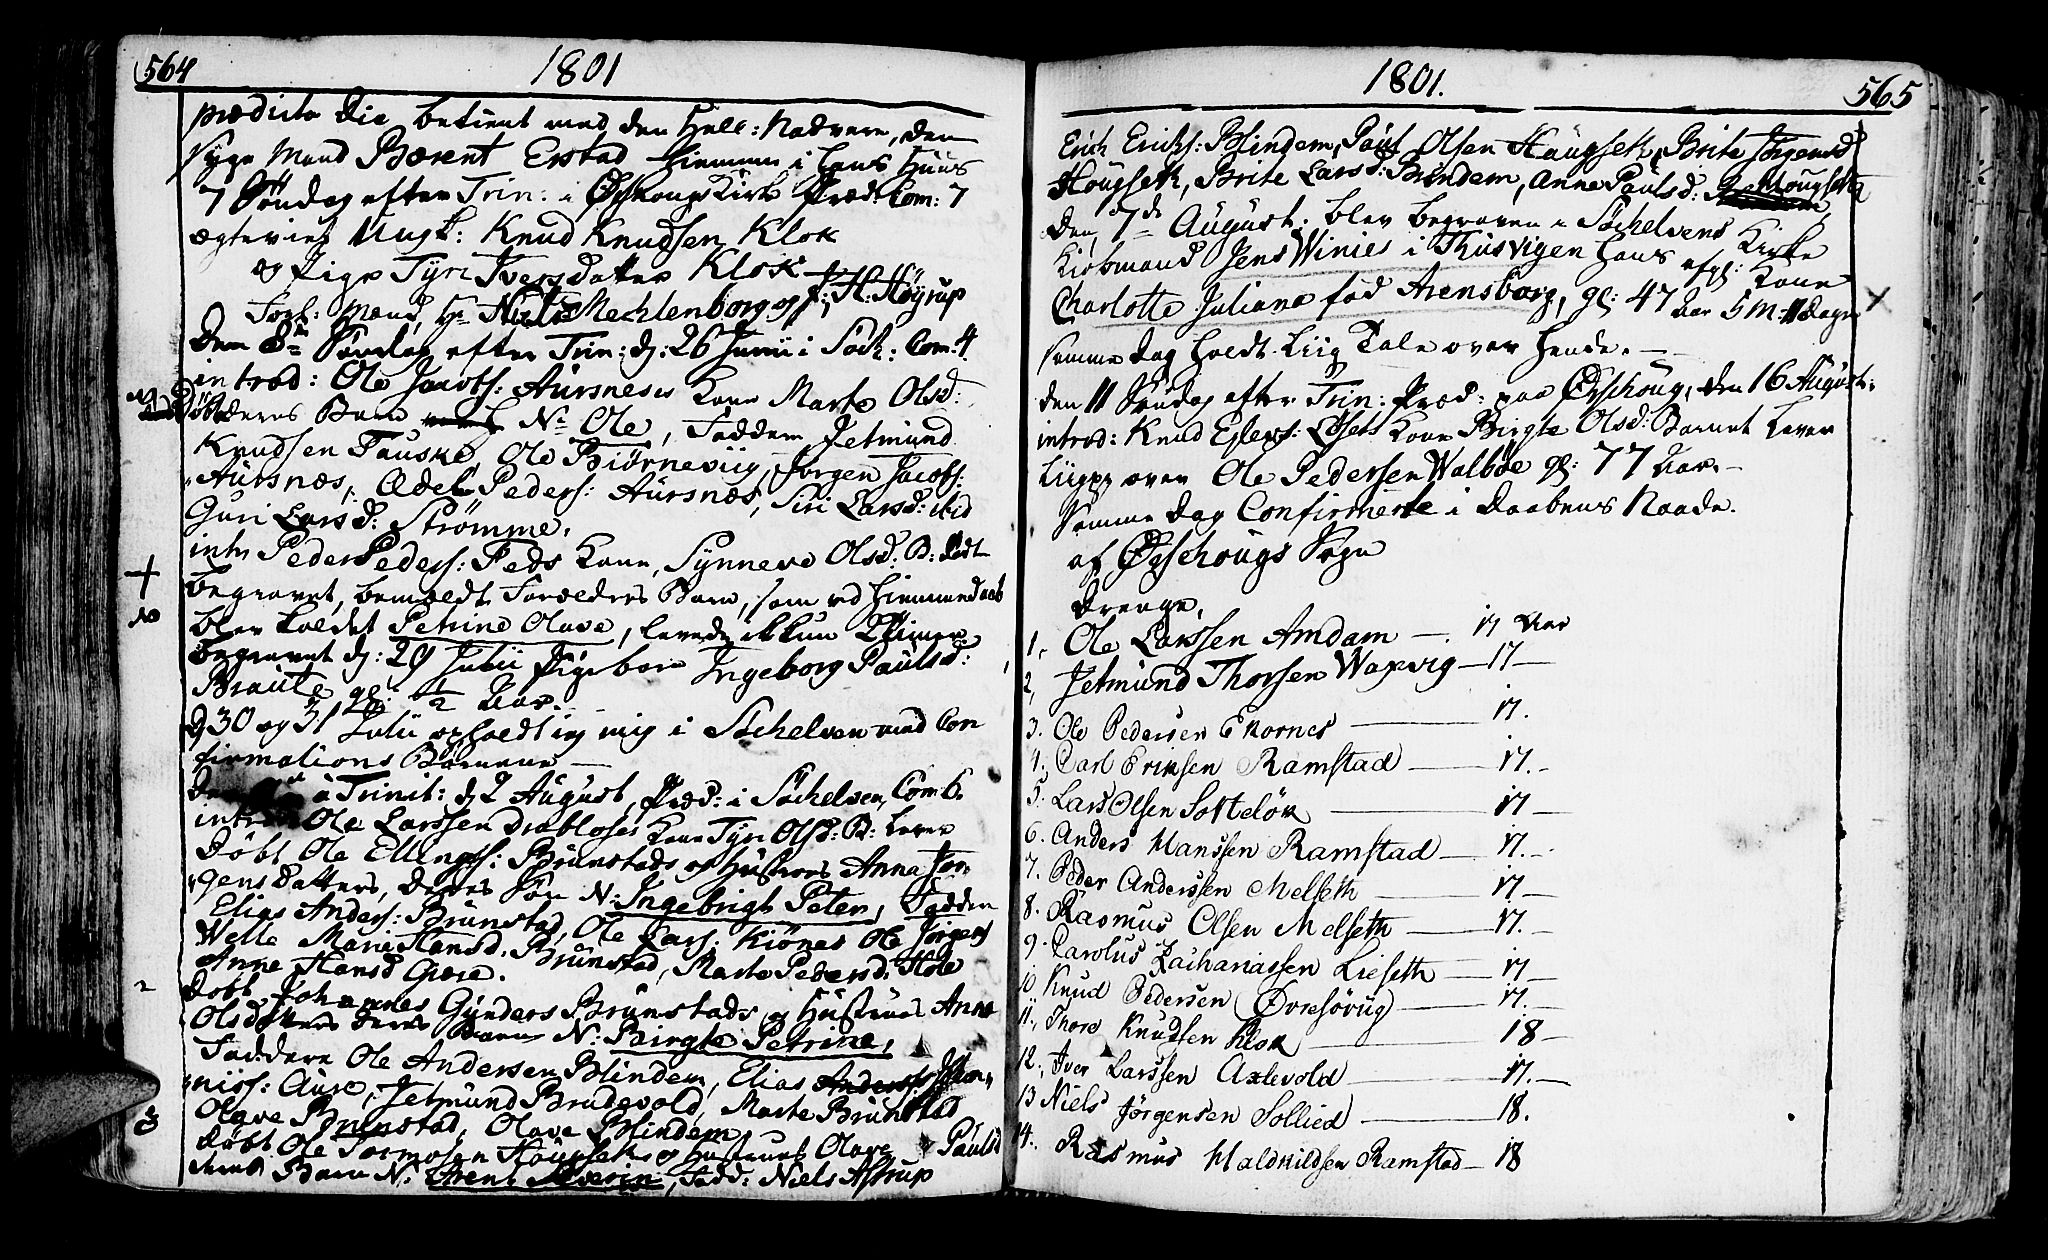 564
1801
prædicto die betient med den Hell: Nadvere, den
syge Mand Bærent Erstad hiemme i hans Huus
7 Søndag efter Trin: i Ørschougs Kirke Præd: Com: 7
ægteviet Ungk: Knud Knudsen Klok
og Pige Tyri Iversdatter Klok
Forl: Mænd, Hr Niels Mechlenborg og H: Høyrup
Den 8de Søndag efter Trin: d: 26 Junii i Søck: Com: 4
introd: Ole Jacobs: Aursneses Kone Marte Olsd:
deres Barn N: Ole, Faddere Jetmund
Knudsen Fauske, Ole Biørneviig, Jørgen Jacobs:
Aursnæs, Ædel Peders: Aursnæs, Siri Larsd: ibid
Guri Larsd: Strømme.
intr Peder Peders: Peds Kone, Synneve Olsd: B: dødt
begravet, bemældt Forældres Barn, som ved Hiemmedaab
blev kaldet Petrine Olave, levede ikkun 2 Timer
begravet d: 29 Julii Pigebarn Ingeborg Paulsd:
Braute gl: 1/2 Aar.
d 30 og 31 Julii opholdt ieg mig i Söchelven med Con
firmations Børnene
Den à Trinit: d 2 August, Præd: i Söchelven, Com: 6.
introd Ole Larssen Drabløses Kone Tyri Olsd: B: lever
Døbt Ole Ellings: Brunstads og Hustroes Anna Jør-
gens Datters, deres Søn N: Ingebrigt Peter, Fadder
Elias Anders: Brunstad, Ole Lars: Kiønes Ole Jørgens
Welle Marie Hansd. Brunstad, Marte Pedersd: Hole
Anne Hansd Giære.
2
døbt Johannes Gynders Brunstads og Hustrues Anne
Olsdatters deres Barn N: Birgte Petrine,
Faddere Ole Andersen Blindem, Elias
nisf: Aure, Jetmund Brudevold, Marte Brunstad
Olave Brunstad, Olave Blindem
3
døbt Ole Tormosen Haugseks og Hustrues Olave Paulsd
deres Barn N. Severin, Fadd: Niels Astrup
1801.
565
Erich Ericks: Blindem, Paul Olsen Haugsek, Brite Jørgensd
Hougsek, Brite Larsd: Blindem, Anne Paulsd: Hougsek
Den 7de August: blev begraven i Söchelvens Kirke
Kiøbmand Jens Winies i Thusvigen hans afgl: Kone
Charlotte Juliane fød Arensborg, gl: 47 Aar 5 M: 11 dage
samme dag holdt Liig Tale over hende.
den 11 Søndag efter Trin: Præd: paa Ørschoug, den 16 August:
introd: Knud Ejlers: Løsets Kone Birgte Olsd: Barnet lever
Liigpr over Ole Pedersen Walbøe gl: 77 Aar.
Samme dag Confirmerte i Daabens Naade.
af Ørschougs Sogn
drenge,
1, Ole Larssen Amdam — 17 Aar
2, Jetmund Thorssen Waxvig — 17 —
3. Ole Pedersen Ekornes — 17.
4. Carl Eriksen Ramstad — 17. —
5. Lars Olsen Sottelöx — 17 —
6. Anders Hanssen Ramstad — 17. —
7. Peder Anderssen Melseth — 17 —
8. Rasmus Olsen Melseth — 17. —
9. Carolus Zachariassen Lieseth — 17 —
10. Knud Pedersen Øvresøvug — 17. —
11., Thore Knudsen Klok — 18 —
12., Iver Larssen Axlevold — 17. —
13 Niels Jørgensen Sollied — 18.
14., Rasmus Maldkildsen Ramstad — 18